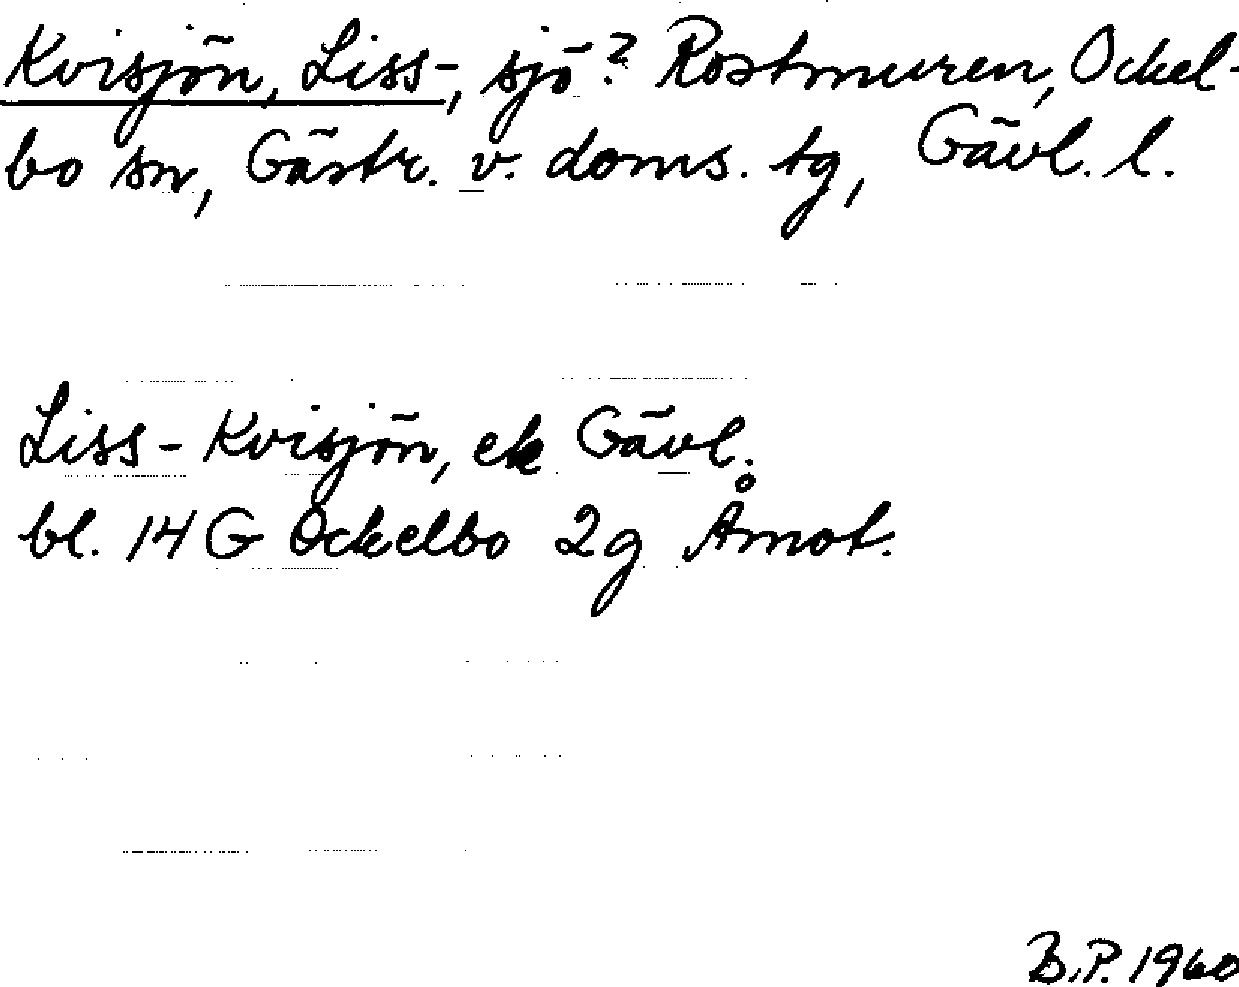 Kvisjön, Liss-, sjö? Rostmuren, Ockel-
bo sn, Gästr. v. doms. tg, Gävl. l.
Liss-Kvisjön, ek Gävl.
bl. 14 G Ockelbo 2g Åmot.
B.P. 1960